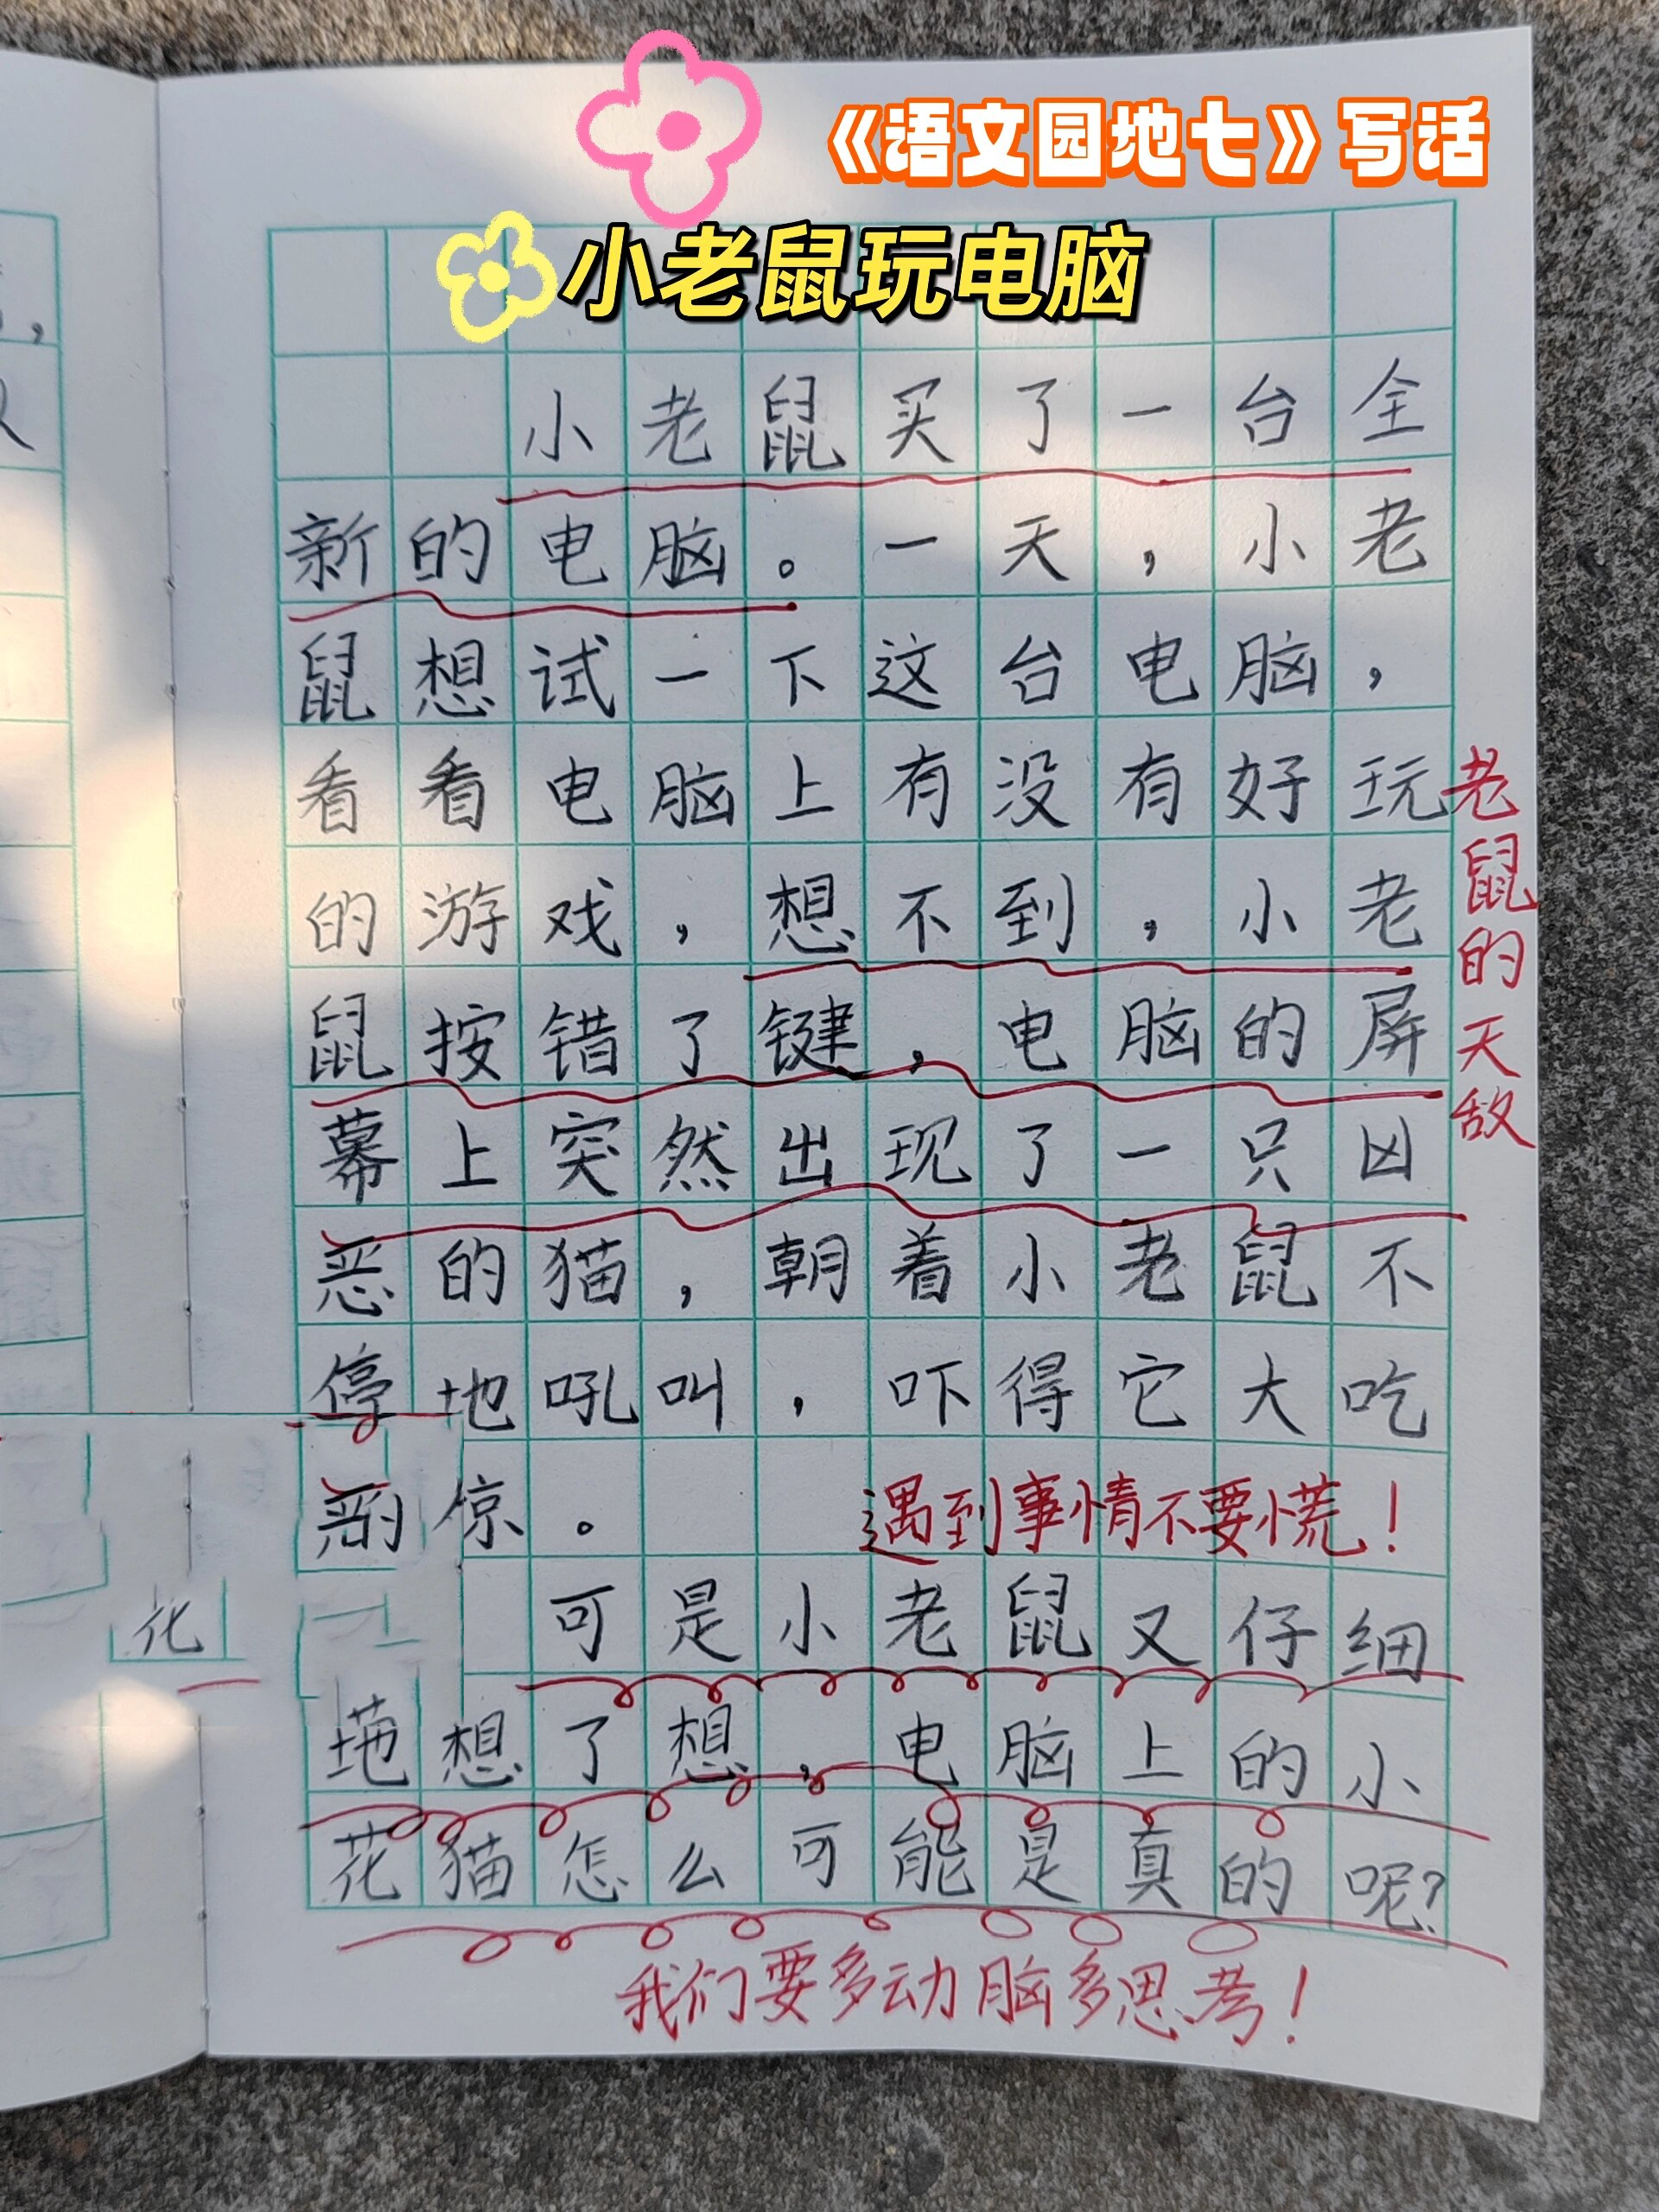 《语文园地七》写话
小老鼠玩电脑
小老鼠买了一台全
新的电脑。一天，小老
鼠想试一下这台电脑，
看看电脑上有没有好玩
的游戏，想不到，小老
鼠按错了键，电脑的屏
幕上突然出现了一只凶
恶的猫，朝着小老鼠不
停地吼叫，吓得它大吃
惊。
可是小老鼠又仔细
想了想，电脑上的小
花猫怎么可能是真的呢?
老鼠的天敌
遇到事情不要慌！
我们要多动脑多思考！
花